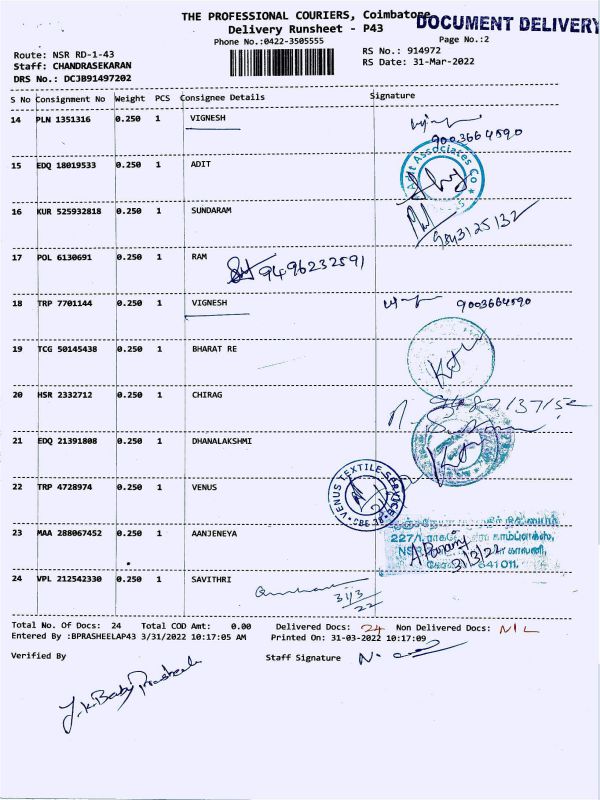 THE PROFESSIONAL COURIERS, Coimbatore
DOCUMENT DELIVERY
Delivery Runsheet - P43
Phone No.:0422-3505555
Page No.:2
Route: NSR RD-1-43
RS No.: 914972
Staff: CHANDRASEKARAN
RS Date: 31-Mar-2022
DRS No.: DCJB91497202
S No Consignment No Weight PCS Consignee Details Signature
14 PLN 1351316 0.250 1 VIGNESH
9003664590
15 EDQ 18019533 0.250 1 ADIT
Adit Associates Co
16 KUR 525932818 0.250 1 SUNDARAM
9843125132
17 POL 6130691 0.250 1 RAM
9496232591
18 TRP 7701144 0.250 1 VIGNESH 9003664590
19 TCG 50145438 0.250 1 BHARAT RE
20 HSR 2332712 0.250 1 CHIRAG
21 EDQ 21391808 0.250 1 DHANALAKSHMI
22 TRP 4728974 0.250 1 VENUS
VENUS TEXTILE SERVICE
CBE-38
23 MAA 288067452 0.250 1 ANJENEYA
227/1,
காம்ப்ளக்ஸ்,
காலனி,
641011.
31/3/22
24 VPL 212542330 0.250 1 SAVITHRI
31/3
22
Total No. Of Docs: 24 Total COD Amt: 0.00 Delivered Docs: 24 Non Delivered Docs: NIL
Entered By :BPRASHEELAP43 3/31/2022 10:17:05 AM Printed On: 31-03-2022 10:17:09
Verified By
Staff Signature